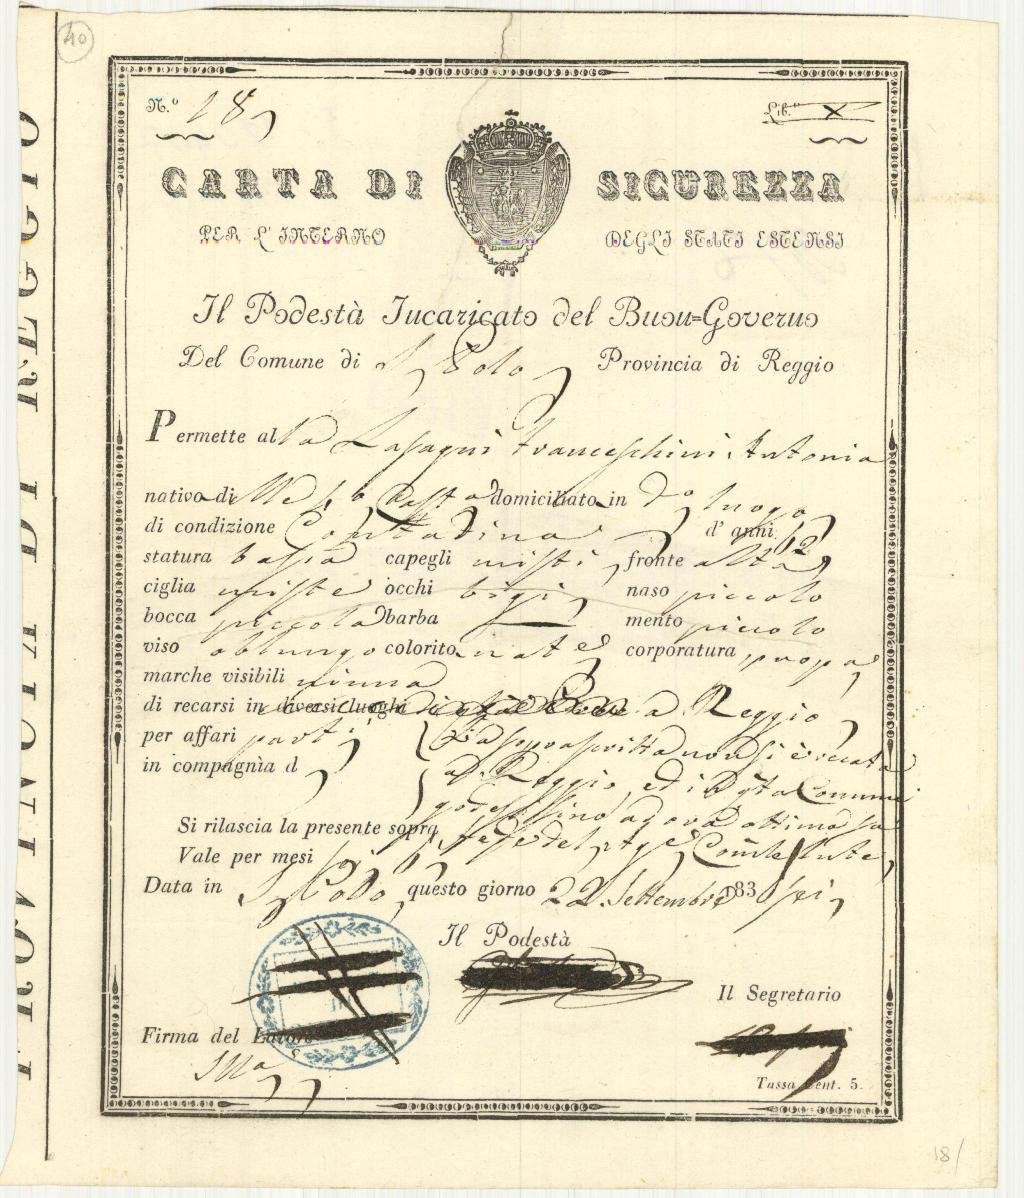 40
N.° 18
Lib.° X
CARTA DI SICUREZZA
PER L'INTERNO DEGLI STATI ESTENSI
Il Podestà Incaricato del Buon=Governo
Del Comune di S. Polo Provincia di Reggio
Permette alla Lasagni Franceschini Antonia
nativo di domiciliato in d.° luogo
di condizione Contadina d'anni
statura bassa capegli misti fronte alta
ciglia miste occhi bigi naso piccolo
bocca piccola barba — mento piccolo
viso oblungo colorito nat.e corporatura
marche visibili niuna
di recarsi in diversi luoghi a Reggio
per affari parti La soprascritta non si è recata
in compagnìa d a Reggio, ed in q.ta Comune
gode sino ad ora ottima fa
Si rilascia la presente sopra fede del
Vale per mesi sei
Data in S. Polo questo giorno 22 Settembre 183 sei
Il Podestà
Il Segretario
Firma del Latore
Ill.a
Tassa Cent. 5.
18/
PROVINCIA DI REGGIO